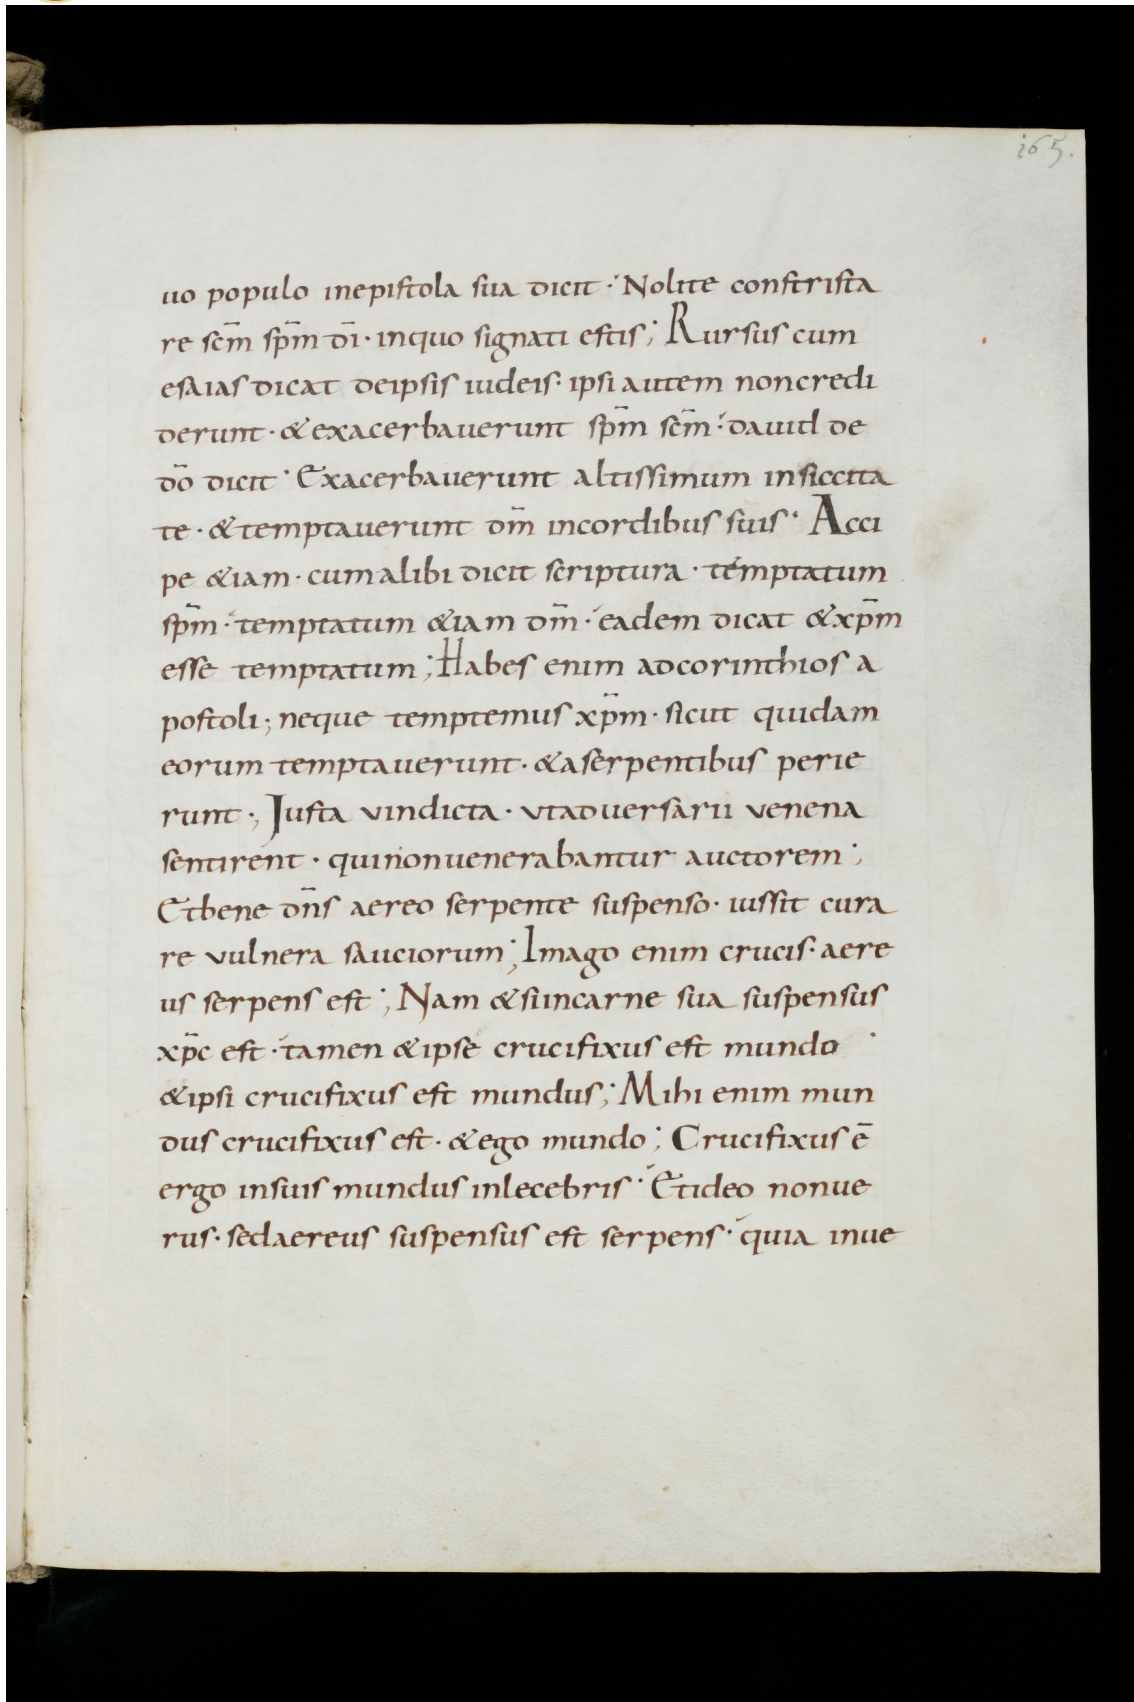 165.
uo populo inepistola sua dicit· Nolite constrista
re scm̄ spm̄ dī· inquo signati estis; Rursus cum
esaias dicat deipsis iudeis· ipsi autem noncredi
derunt· &exacerbauerunt spm̄ scm̄· dauid de
dō dicit· Exacerbauerunt altissimum insiccita
te· &temptauerunt dm̄ incordibus suis· Acci
pe &iam· cumalibi dicit scriptura· temptatum
spm̄· temptatum &iam dm̄· eadem dicat &xpm̄
esse temptatum; Habes enim adcorinthios a
postoli; neque temptemus xpm̄· sicut quidam
eorum temptauerunt· &aserpentibus perie
runt·; Justa vindicta· vtaduersarii venena
sentirent· quinonuenerabantur auctorem;
Etbene dn̄s aereo serpente suspenso· iussit cura
re vulnera sauciorum; Imago enim crucis· aere
us serpens est; Nam &siincarne sua suspensus
xp̄c est· tamen &ipse crucifixus est mundo·
&ipsi crucifixus est mundus; Mihi enim mun
dus crucifixus est· &ego mundo; Crucifixus ē
ergo insuis mundus inlecebris· Etideo nonue
rus· sedaereus suspensus est serpens· quia inue